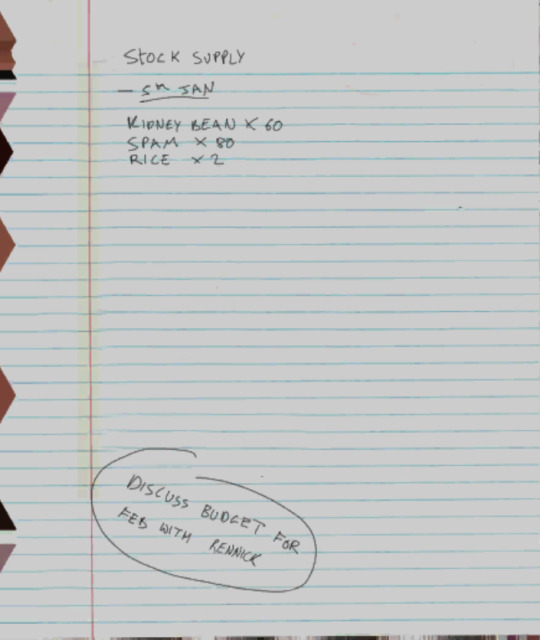 STOCK SUPPLY
- 5th JAN
KIDNEY BEAN X 60
SPAM X 80
RICE X 2
DISCUSS BUDGET FOR
FEB WITH RENNICK